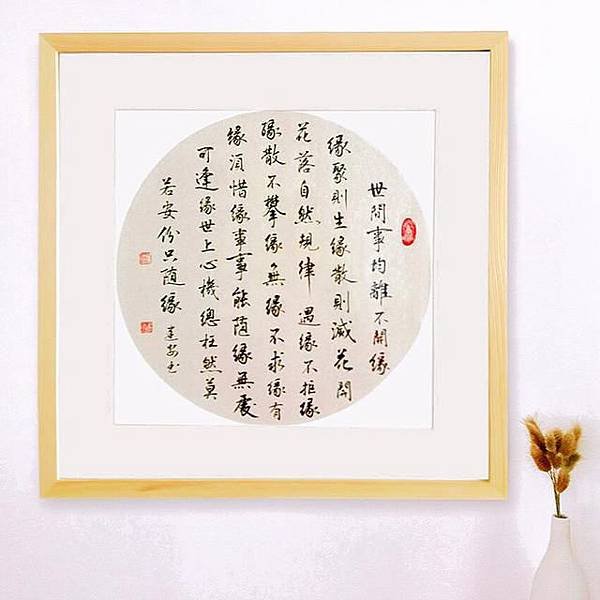 世間事均離不開緣
緣聚則生緣散則滅花開
花落自然規律遇緣不拒緣
緣散不攀緣無緣不求緣有
緣須惜緣事事能随緣無處
可逢緣世上心機總枉然莫
若安份只随緣